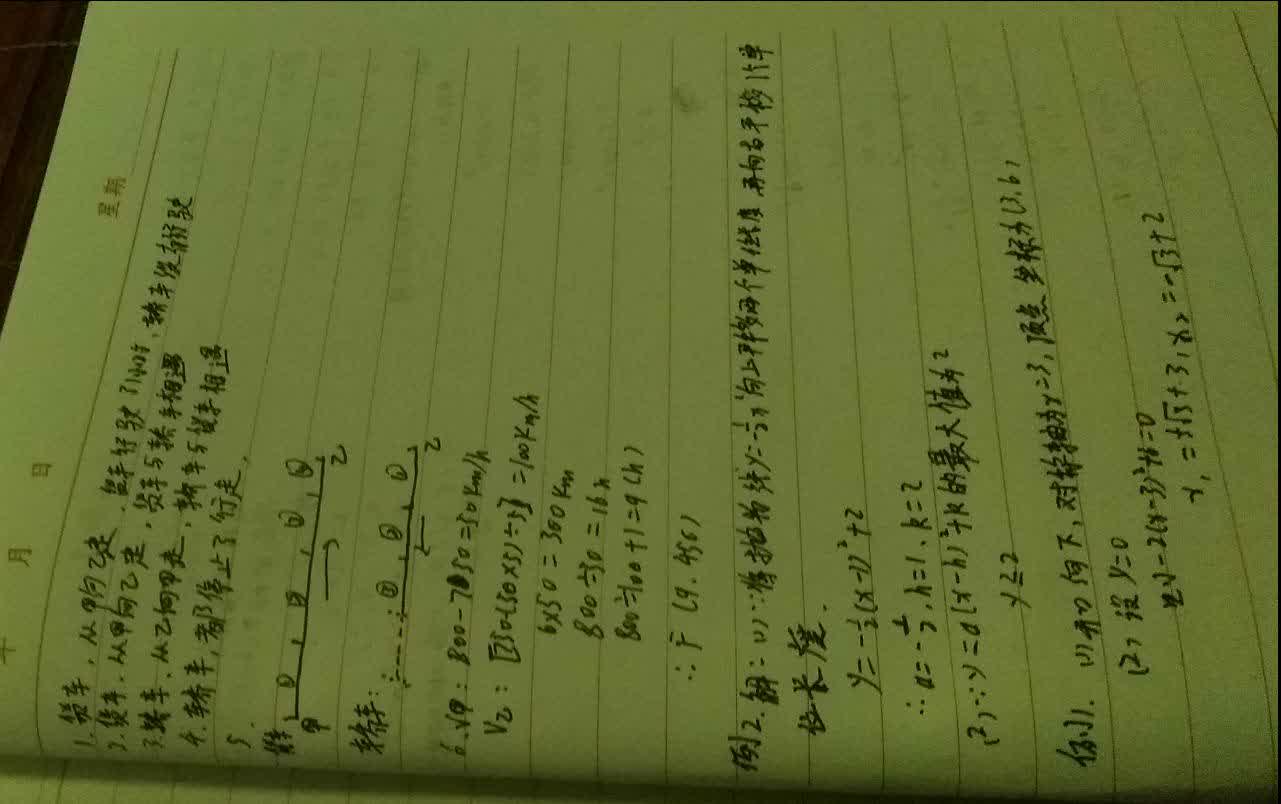 年 月 日 星期
1. 货车,从甲向乙走,货车行驶了1小时,轿车没有行驶
2. 货车,从甲向乙走,货车与轿车相遇
3. 轿车,从乙向甲走,轿车与货车相遇
4. 轿车,都停止了行走,
5.
① ② ③ ④
甲 乙
轿车:
① ② ③ ④
乙
6. V甲: 800-750=50km/h
V乙: [750-(50×5)÷5]=100km/h
6×50=300km
800÷50=16h
800÷100+1=9(h)
∴F(9.450)
例2. 解:(1)∵将抛物线y=-½x²向上平移两个单位长度,再向右平移1个单
位长度.
y=-½(x-1)²+2
∴a=-½,h=1,k=2
(2)∵y=a(x-h)²+k的最大值为2
y≤2
例1. (1)开口向下,对称轴为x=3,顶点坐标为(3.6)
(2)设y=0
-2(x-3)²+6=0
x₁=+√3+3,x₂=-√3+2